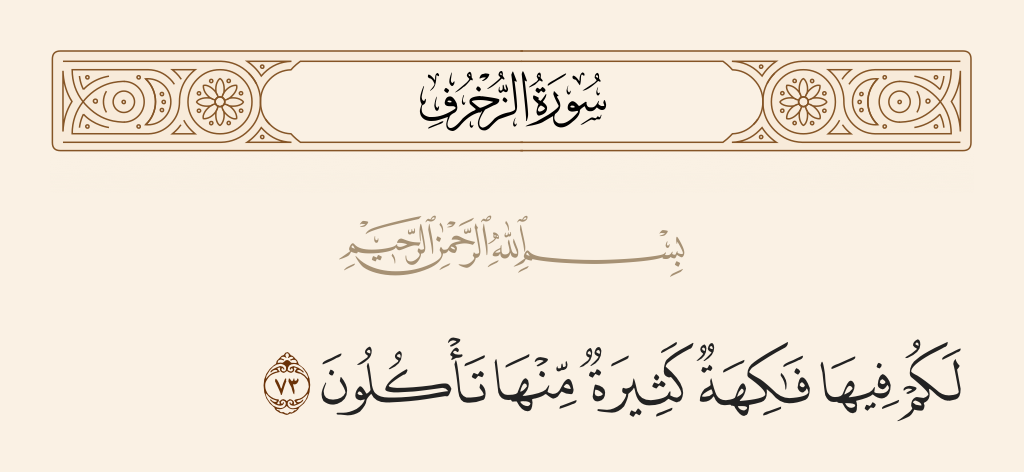 سُورَةُ الزُّخْرُفِ
بِسْمِ ٱللَّهِ ٱلرَّحْمَٰنِ ٱلرَّحِيمِ
لَكُمْ فِيهَا فَٰكِهَةٌ كَثِيرَةٌ مِّنْهَا تَأْكُلُونَ ٧٣